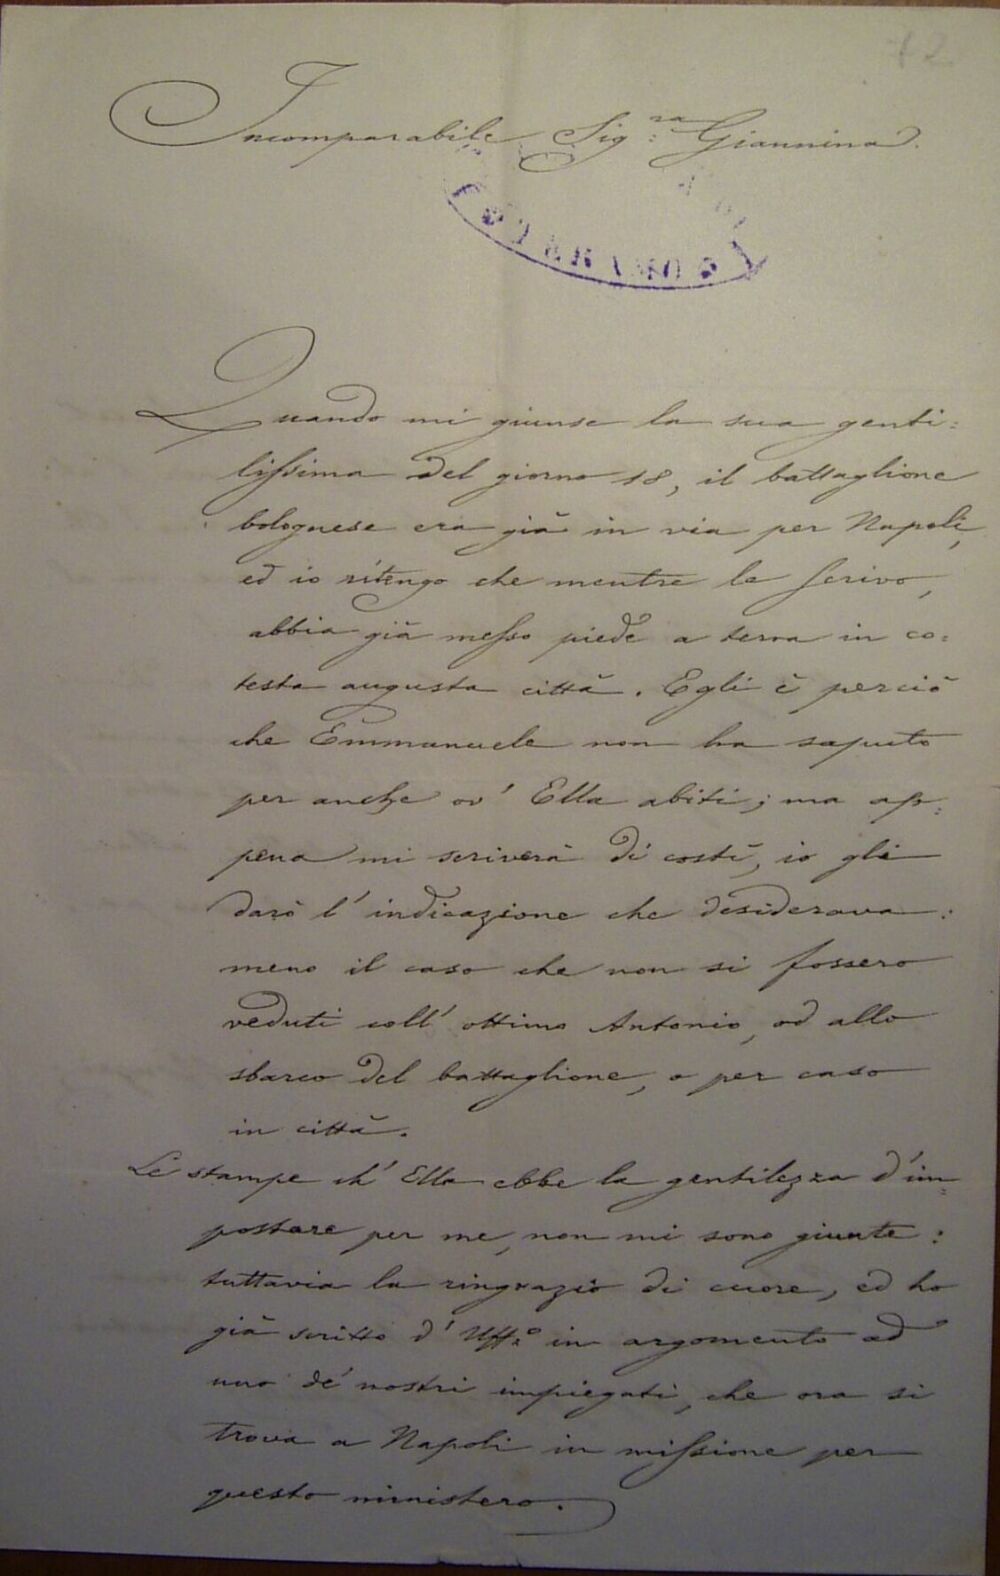 72
Incomparabile Sig:ra Giannina.
Quando mi giunse la sua genti:
lissima del giorno 18, il battaglione
bolognese era già in via per Napoli,
ed io ritengo che mentre le scrivo,
abbia già messo piede a terra in co:
testa augusta città. Egli è perciò
che Emmanuele non ha saputo
per anche ov' Ella abiti; ma ap:
pena mi scriverà di costì, io gli
darò l' indicazione che desiderava:
meno il caso che non si fossero
veduti coll' ottimo Antonio, od allo
sbarco del battaglione, o per caso
in città.
Le stampe ch' Ella ebbe la gentilezza d' im:
postare per me, non mi sono giunte:
tuttavia la ringrazio di cuore, ed ho
già scritto d' Uff:o in argomento ad
uno de' nostri impiegati, che ora si
trova a Napoli in missione per
questo ministero.